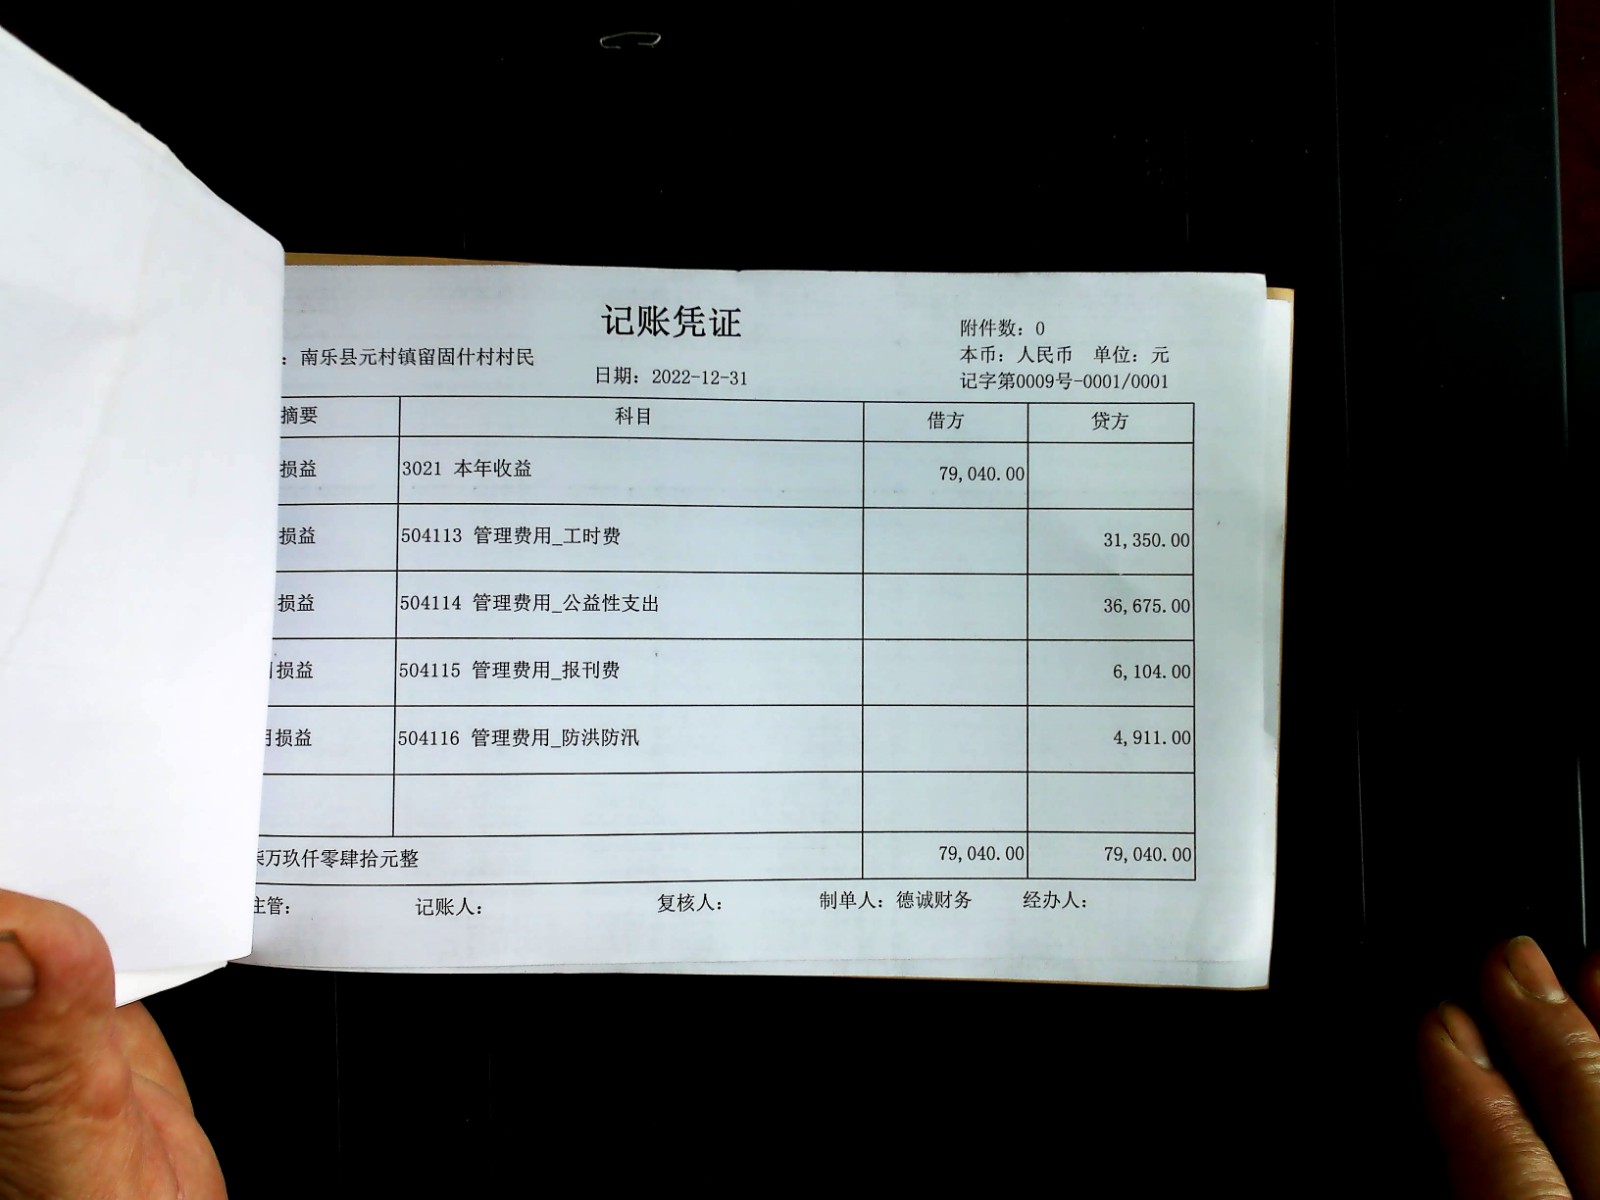 记账凭证
附件数：0
：南乐县元村镇留固什村村民
日期：2022-12-31
本币：人民币 单位：元
记字第0009号-0001/0001
摘要 科目 借方 贷方
损益 3021 本年收益 79,040.00
损益 504113 管理费用_工时费 31,350.00
损益 504114 管理费用_公益性支出 36,675.00
损益 504115 管理费用_报刊费 6,104.00
损益 504116 管理费用_防洪防汛 4,911.00
万玖仟零肆拾元整 79,040.00 79,040.00
主管： 记账人： 复核人： 制单人：德诚财务 经办人：